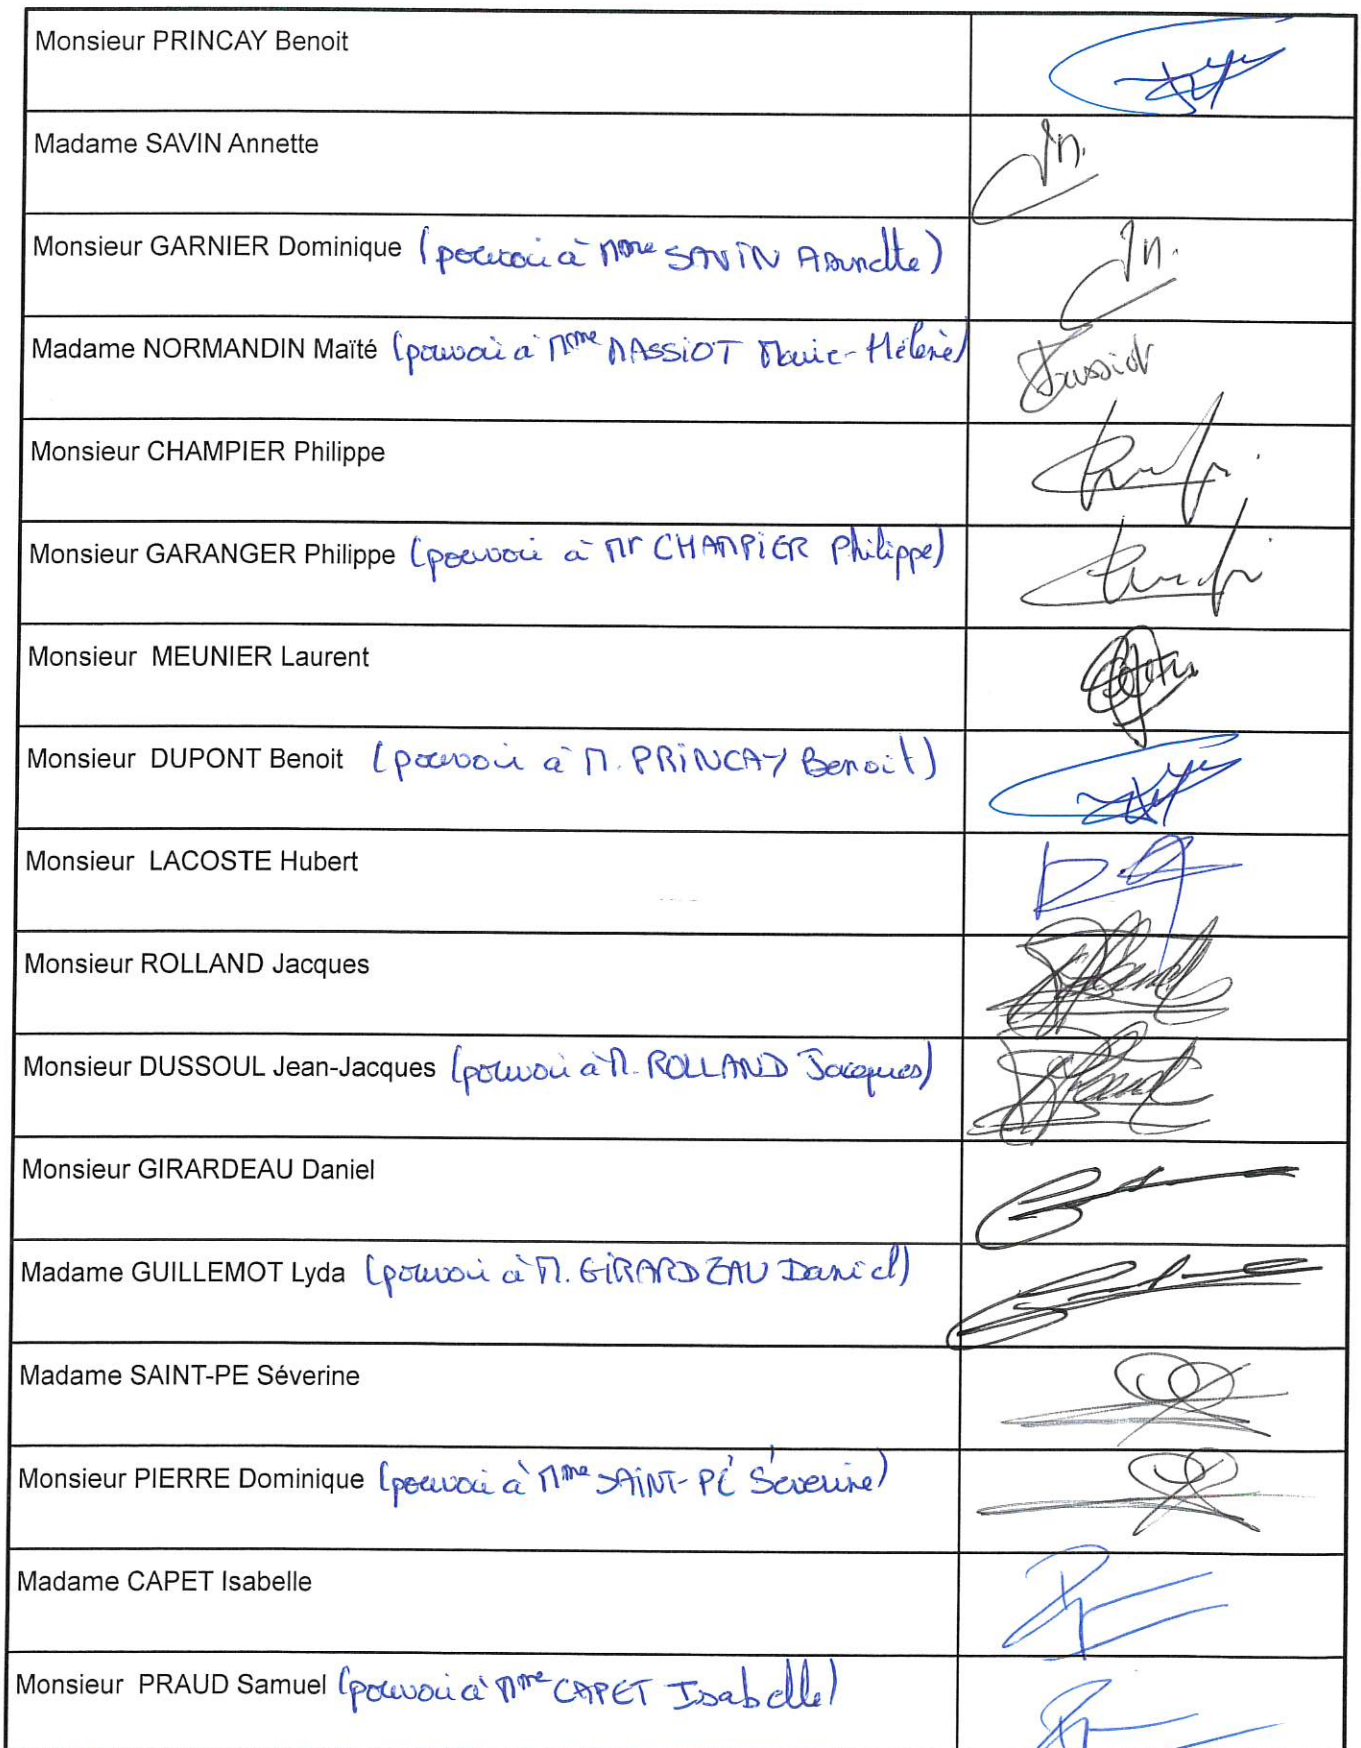 Monsieur PRINCAY Benoit
Madame SAVIN Annette
Monsieur GARNIER Dominique (pouvoir à Mme SAVIN Annette)
Madame NORMANDIN Maïté (pouvoir à Mme MASSIOT Marie-Hélène)
Massiot
Monsieur CHAMPIER Philippe
Monsieur GARANGER Philippe (pouvoir à Mr CHAMPIER Philippe)
Monsieur MEUNIER Laurent
Monsieur DUPONT Benoit (pouvoir à M. PRINCAY Benoit)
Monsieur LACOSTE Hubert
Monsieur ROLLAND Jacques
Monsieur DUSSOUL Jean-Jacques (pouvoir à M. ROLLAND Jacques)
Monsieur GIRARDEAU Daniel
Madame GUILLEMOT Lyda (pouvoir à M. GIRARDEAU Daniel)
Madame SAINT-PE Séverine
Monsieur PIERRE Dominique (pouvoir à Mme SAINT-PÉ Séverine)
Madame CAPET Isabelle
Monsieur PRAUD Samuel (pouvoir à Mme CAPET Isabelle)